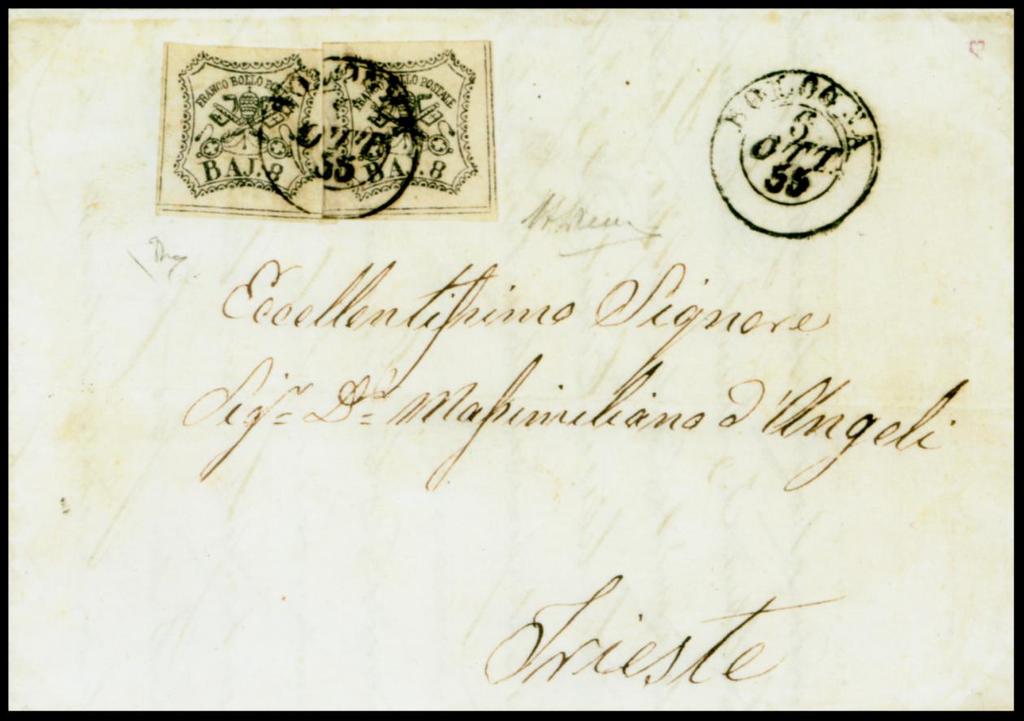 FRANCO BOLLO POSTALE
BAJ. 8
BAJ. 8
BOLOGNA
6
OTT.
55
BOLOGNA
6
OTT.
55
Eccellentissimo Signore
Sigr. Dr. Massimiliano d'Angeli
Trieste